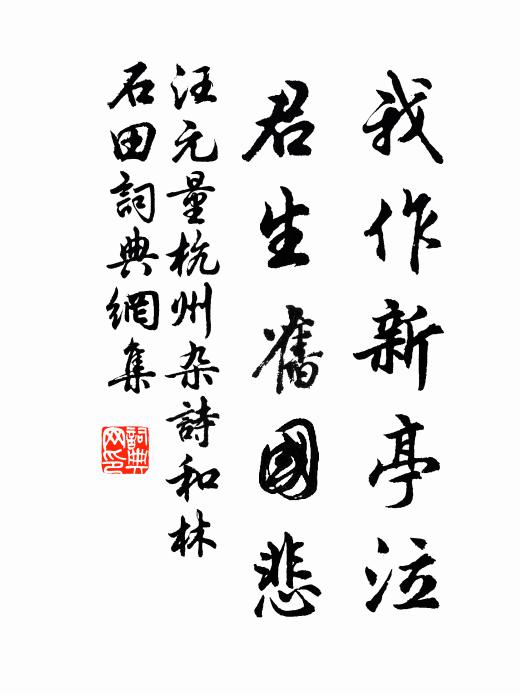 我作新亭泣
君生舊國悲
汪元量杭州杂詩和林
石田詞典網集
詞典
网印